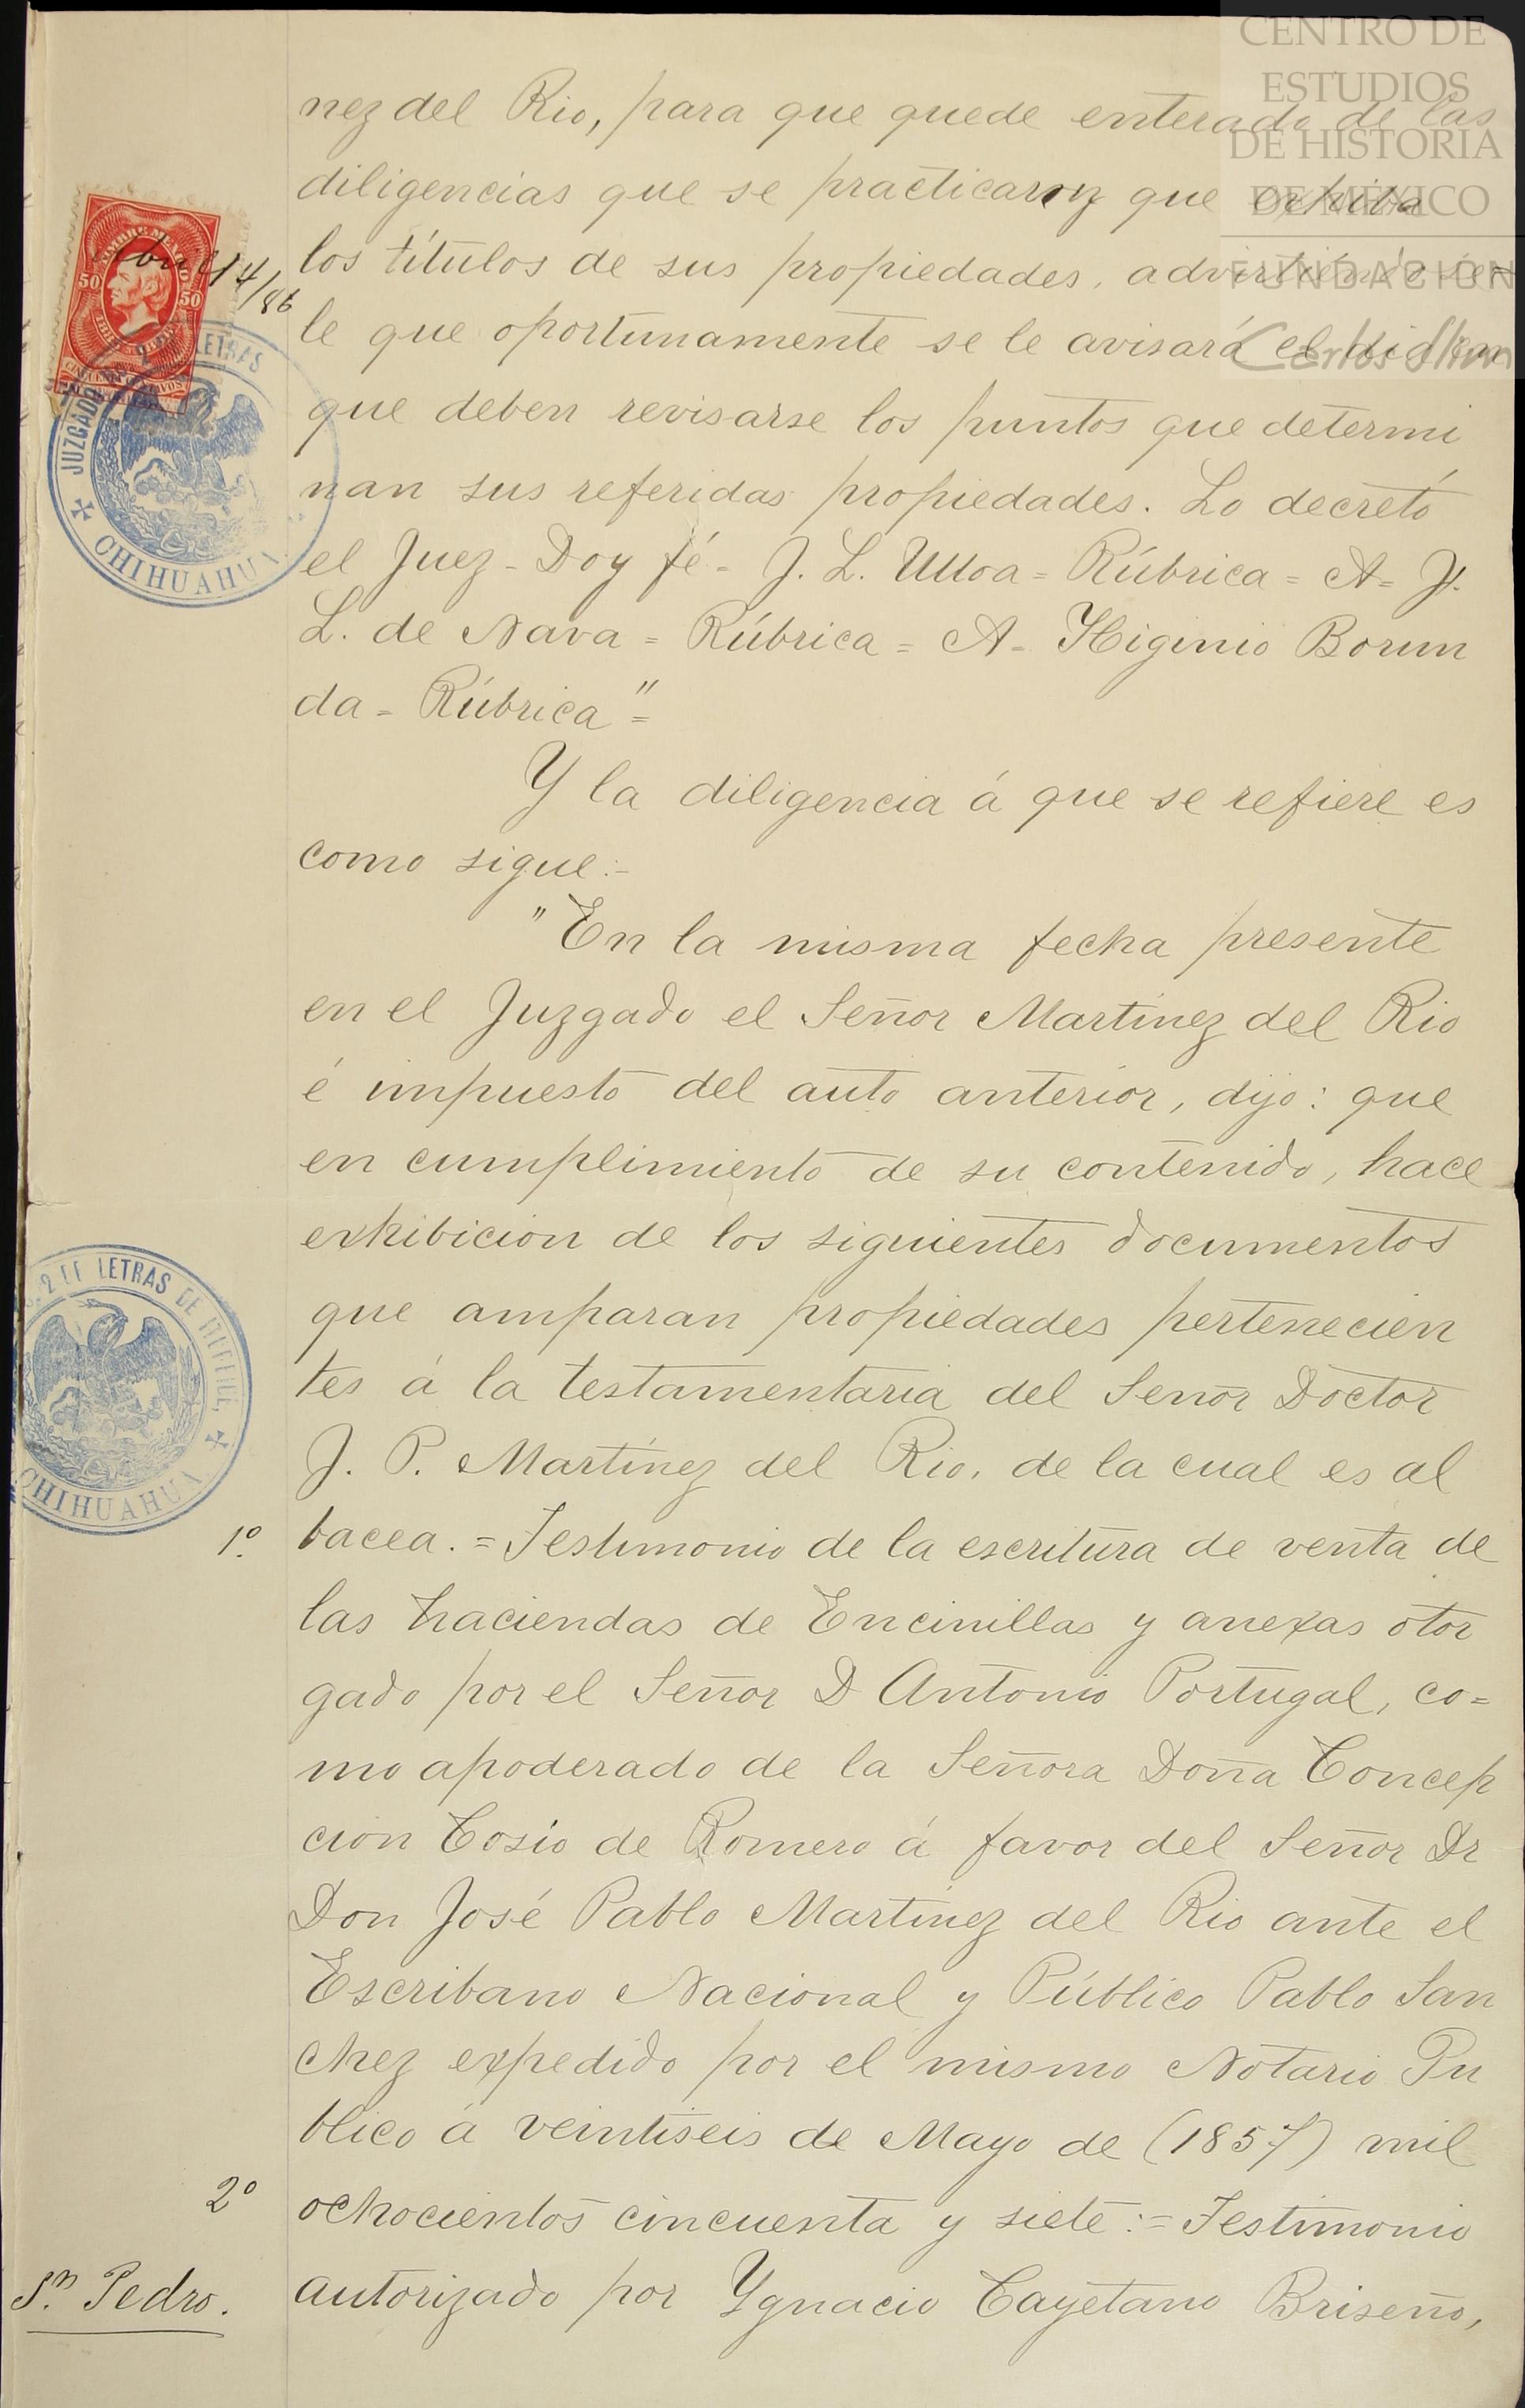 CENTRO DE
ESTUDIOS
DE HISTORIA
DE MÉXICO
FUNDACION
Carlos Slim
nez del Rio, para que quede enterado de las
diligencias que se practicaron y que exhiba
los títulos de sus propiedades, advirtiendose=
le que oportunamente se le avisará el dia en
que deben revisarse los puntos que determi
nan sus referidas propiedades. Lo decretó
el Juez - Doy fé - J. L. Ulloa = Rúbrica = A = J.
L. de Nava = Rúbrica = A - Higinio Borun
da = Rúbrica" =
Y la diligencia á que se refiere es
como sigue:-
"En la misma fecha presente
en el Juzgado el Señor Martinez del Rio
é impuesto del auto anterior, dijo: que
en cumplimiento de su contenido, hace
exhibicion de los siguientes documentos
que amparan propiedades pertenecien
tes á la testamentaria del Señor Doctor
J. P. Martinez del Rio, de la cual es al
1º. bacea. = Testimonio de la escritura de venta de
las haciendas de Encinillas y anexas otor
gado por el Señor D Antonio Portugal, co=
mo apoderado de la Señora Doña Concep
cion Cosío de Romero á favor del Señor Dr
Don José Pablo Martinez del Rio ante el
Escribano Nacional y Público Pablo San
chez expedido por el mismo Notario Pu
blico á veintiseis de Mayo de (1857) mil
2º ochocientos cincuenta y siete: = Testimonio
Sn. Pedro. autorizado por Ygnacio Cayetano Briseño,
50 50
Abril 14/86
JUZGADO 2 LETRAS
CHIHUAHUA
2 LETRAS DE
CHIHUAHUA